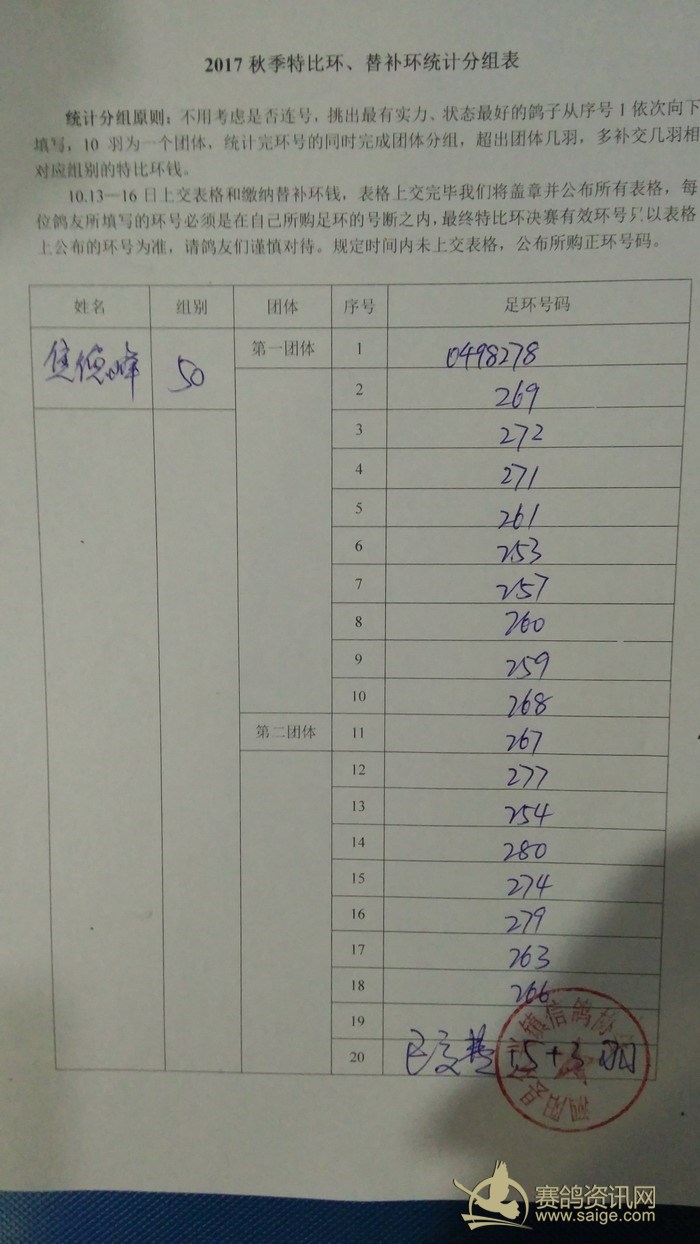 2017 秋季特比环、替补环统计分组表
统计分组原则：不用考虑是否连号，挑出最有实力、状态最好的鸽子从序号 1 依次向下
填写，10 羽为一个团体，统计完环号的同时完成团体分组，超出团体几羽，多补交几羽相
对应组别的特比环钱。
10.13—16 日上交表格和缴纳替补环钱，表格上交完毕我们将盖章并公布所有表格，每
位鸽友所填写的环号必须是在自己所购足环的号断之内，最终特比环决赛有效环号只以表格
上公布的环号为准，请鸽友们谨慎对待。规定时间内未上交表格，公布所购正环号码。
姓名 组别 团体 序号 足环号码
焦德峰 50 第一团体 1 0498278
2 269
3 272
4 271
5 261
6 253
7 257
8 260
9 259
10 268
第二团体 11 267
12 277
13 254
14 280
15 274
16 279
17 263
18 266
19
20 已交替 15+3 羽
镇信鸽协
泗阳县
赛鸽资讯网
www.saige.com